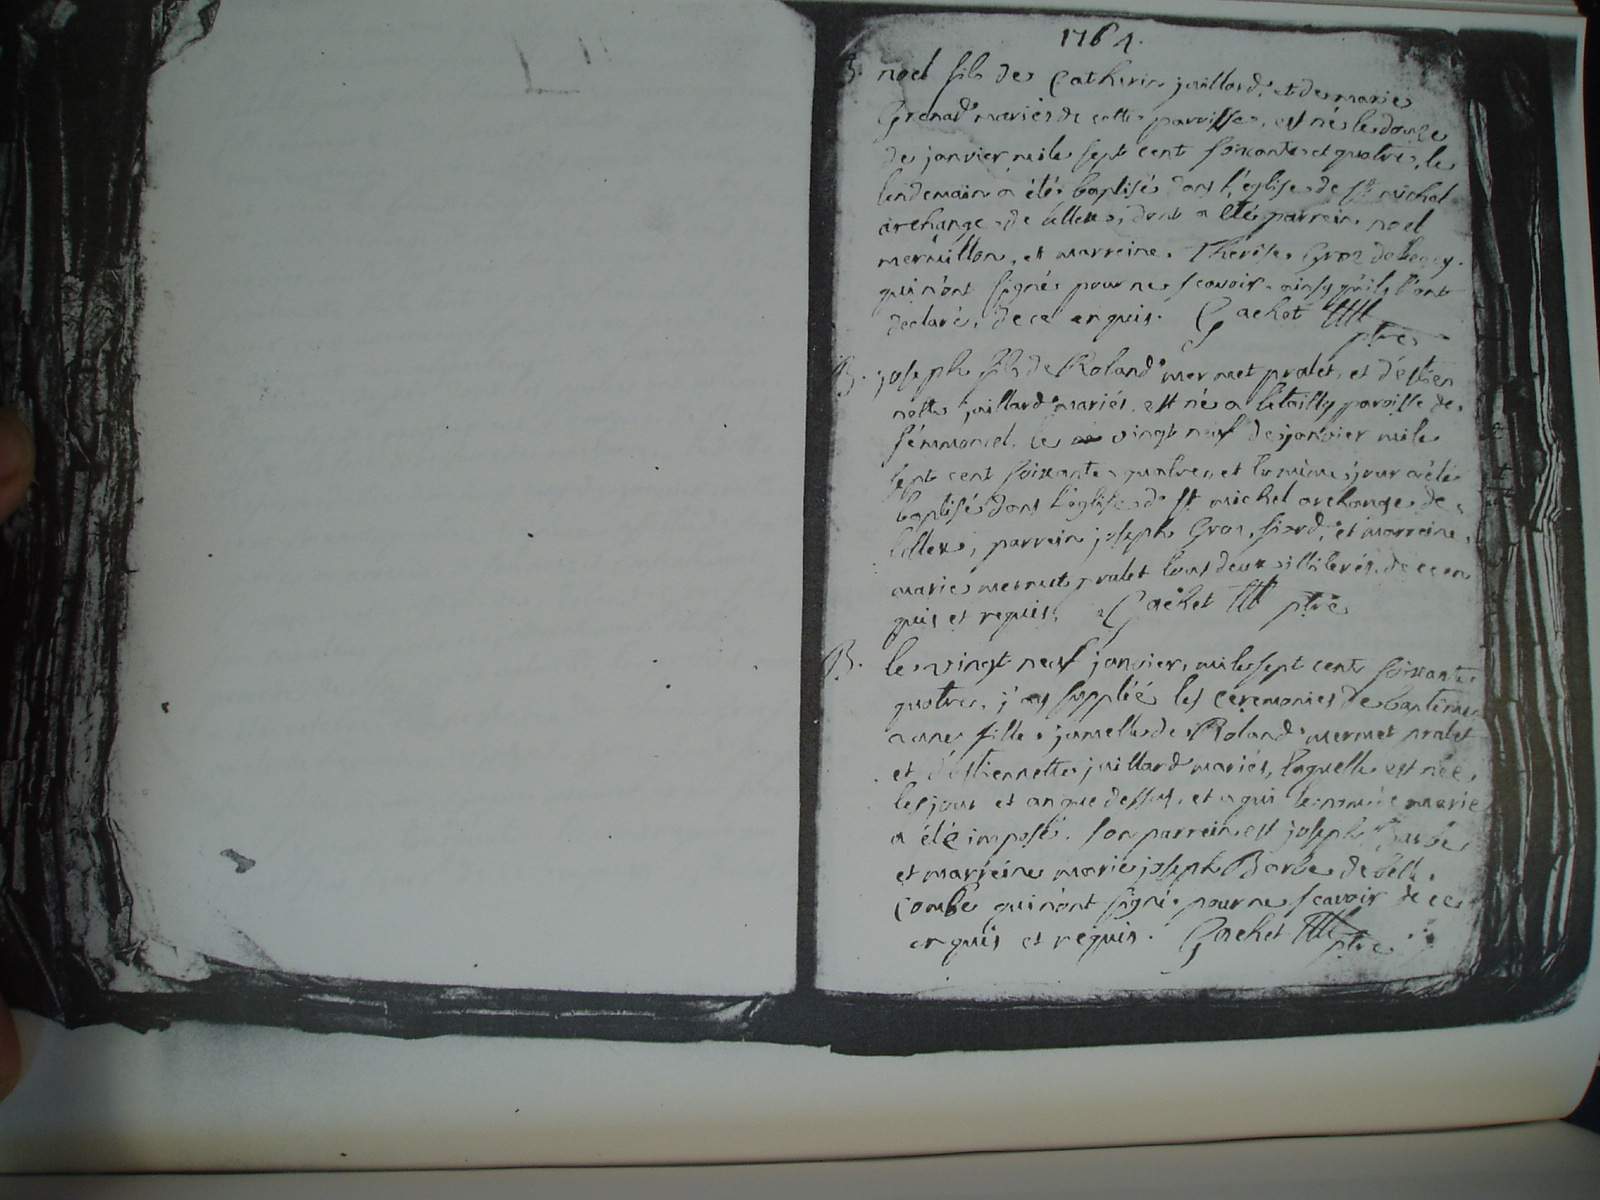 1764.
B. noel fils de Catherin juillard, et de marie
Grenard mariés de cette parroisse, est né le douze
de janvier mile sept cent soixante et quatre, le
lendemain a été baptisé dans l'église de st michel
archange de lellex, dont a été parrein noel
mermillon, et marreine Therese Gros
qui n'ont signé pour ne scavoir ainsy qu'ils l'ont
declaré, de ce enquis. Gachet
ptre
B. joseph fils de Roland mermet pralet, et d'estien
nette juillard mariés, est né a paroisse de
le vingt neuf de janvier mile
sept cent soixante quatre, et le même jour a été
baptisé dans l'église de st michel archange de
lellex, parrein joseph Gros, et marreine
marie mermet pralet tous deux illiterés, de ce en
quis et requis, Gachet ptre
B. le vingt neuf janvier, mile sept cent soixante
quatre, j'ay supplié les ceremonies de baptême
a une fille jumelle de Roland mermet pralet
et d'estiennette juillard mariés, laquelle est née
les jour et an que dessus, et a qui le marie
a été imposé. son parrein est joseph
et marreine marie joseph Barbe de belle
combe qui n'ont signé pour ne scavoir de ce
enquis et requis. Gachet
ptre